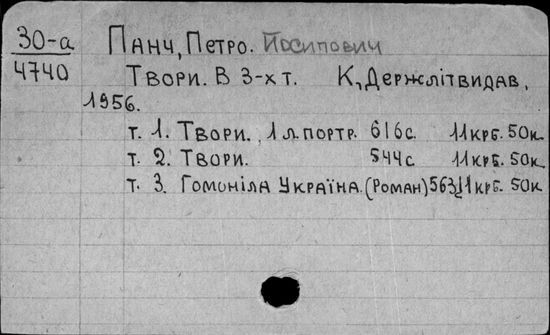 30-а Панч, Петро. Йосипович
4740 Твори. В 3-х т. К, Держлітвидав,
1956.
т. 1. Твори. 1 л. портр. 616с. 11крб. 50к.
т. 2. Твори. 544с 11крб. 50к.
т. 3. Гомоніла Україна. (Роман) 563с 11крб. 50к.